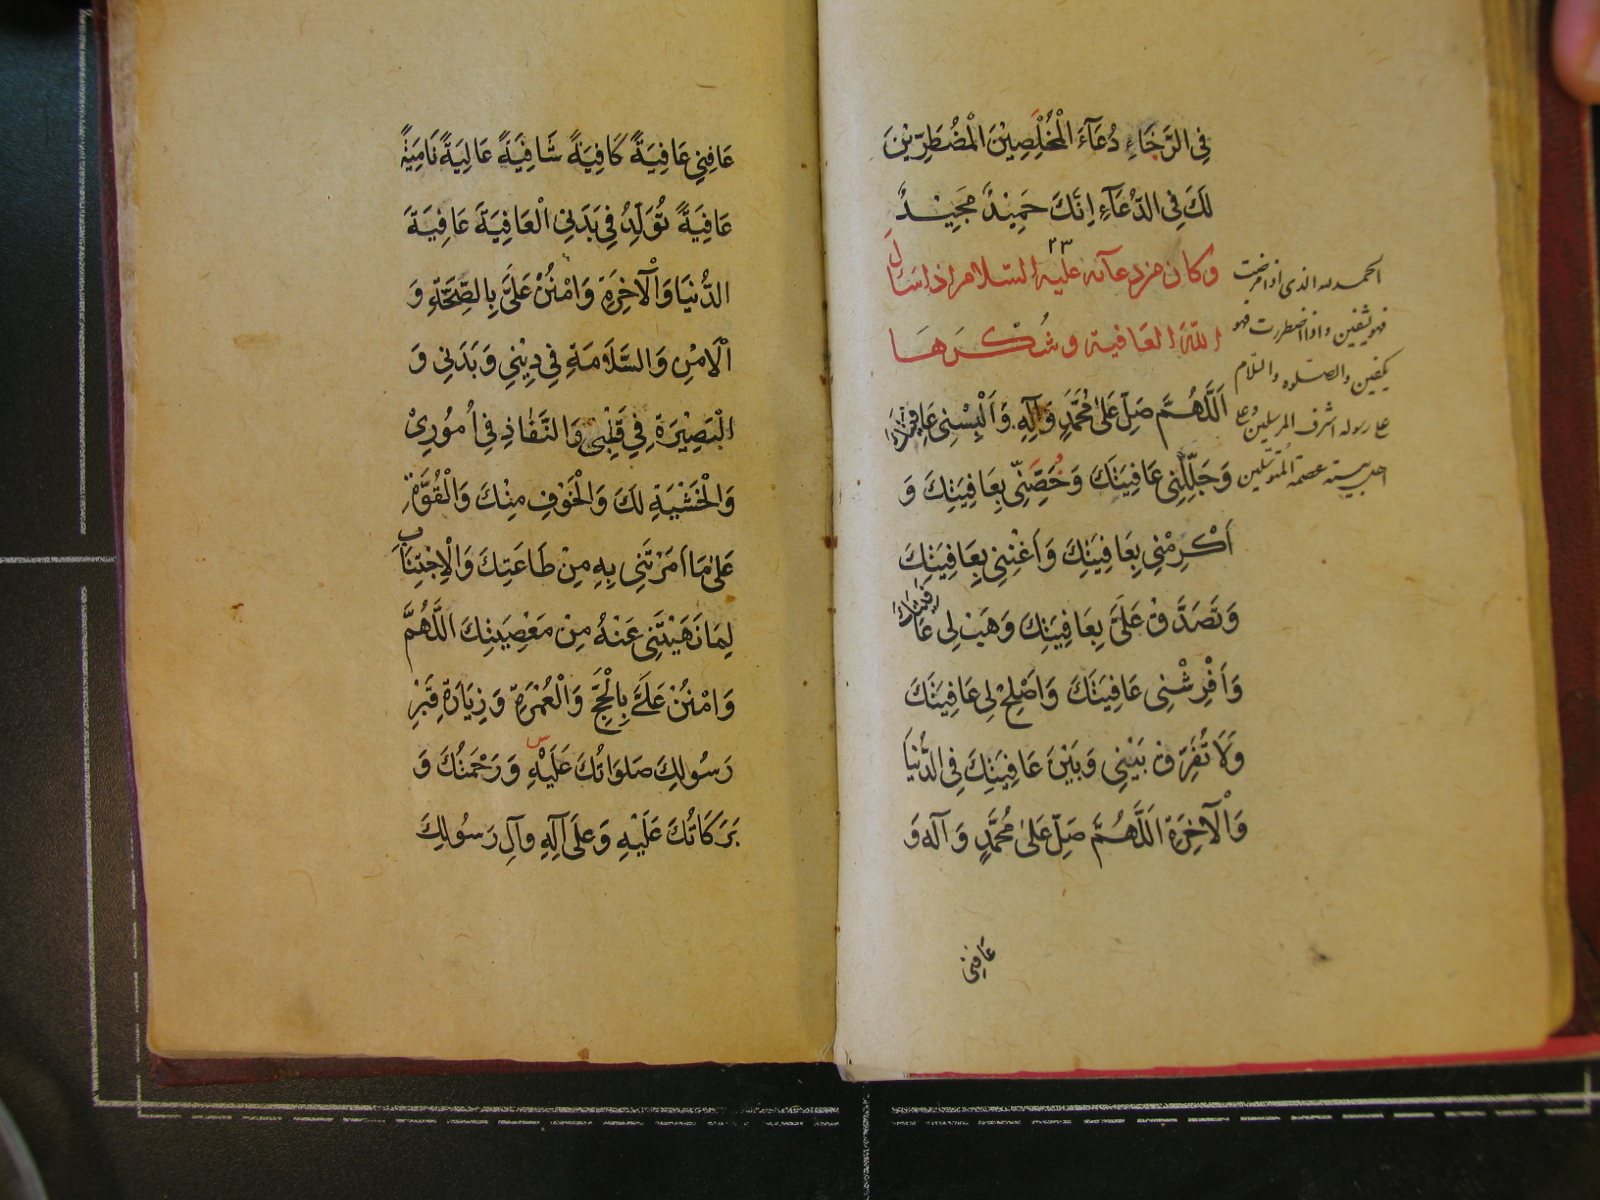 فِي الرَّخَاءِ دُعَآءَ الْمُخْلِصِيْنَ الْمُضْطَرِّيْنَ
لَكَ فِي الدُّعَآءِ اِنَّكَ حَمِيْدٌ مَجِيْدٌ
٢٣
وكان من دعآئه عليه السلام اذا سَاَلَ
اللّٰهَ العافية وشُكْرَهَا
اَللَّهُمَّ صَلِّ عَلىٰ مُحَمَّدٍ وَآلِهِ وَاَلْبِسْنِي عَافِيَتَكَ
وَجَلِّلْنِي عَافِيَتَكَ وَحُصِّنِّي بِعَافِيَتِكَ وَ
اَكْرِمْنِي بِعَافِيَتِكَ وَاَغْنِنِي بِعَافِيَتِكَ
وَتَصَدَّقْ عَلَيَّ بِعَافِيَتِكَ وَهَبْ لِي عَافِيَتَكَ
وَاَفْرِشْنِي عَافِيَتَكَ وَاَصْلِحْ لِي عَافِيَتَكَ
وَلَا تُفَرِّقْ بَيْنِي وَبَيْنَ عَافِيَتِكَ فِي الدُّنْيَا
وَالْآخِرَةِ اَللَّهُمَّ صَلِّ عَلىٰ مُحَمَّدٍ وَآلِهِ وَ
عَافِنِي
الحمد لله الذى اذا مرضت
فهو يشفين واذا اضطررت فهو
يكفين والصلوه والسلام
على رسوله اشرف المرسلين وعلى
اهل بيته عصمة المتوسلين
عَافِنِي عَافِيَةً كَافِيَةً شَافِيَةً عَالِيَةً نَامِيَةً
عَافِيَةً تُوَلِّدُ فِي بَدَنِي الْعَافِيَةَ عَافِيَةَ
الدُّنْيَا وَالْآخِرَةِ وَامْنُنْ عَلَيَّ بِالصِّحَّةِ وَ
الْاَمْنِ وَالسَّلَامَةِ فِي دِيْنِي وَبَدَنِي وَ
الْبَصِيْرَةِ فِي قَلْبِي وَالنَّفَاذِ فِي اُمُوْرِيْ
وَالْخَشْيَةِ لَكَ وَالْخَوْفِ مِنْكَ وَالْقُوَّةِ
عَلىٰ مَا اَمَرْتَنِي بِهِ مِنْ طَاعَتِكَ وَالْاِجْتِنَابِ
لِمَا نَهَيْتَنِي عَنْهُ مِنْ مَعْصِيَتِكَ اَللَّهُمَّ
وَامْنُنْ عَلَيَّ بِالْحَجِّ وَالْعُمْرَةِ وَزِيَارَةِ قَبْرِ
رَسُولِكَ صَلَوَاتُكَ عَلَيْهِ وَرَحْمَتُكَ وَ
بَرَكَاتُكَ عَلَيْهِ وَعَلىٰ آلِهِ وَآلِ رَسُولِكَ